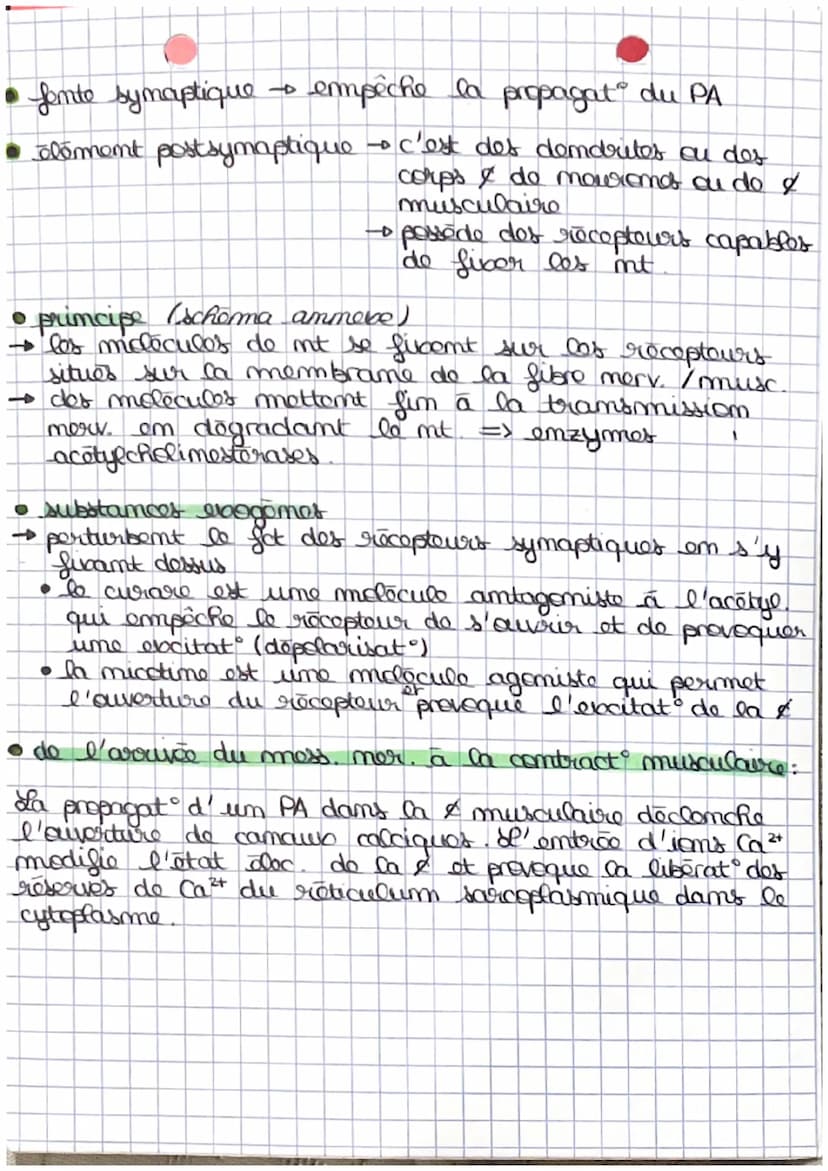 • fente synaptique → empêche la propagat° du PA
• élément postsynaptique → c'est des dendrites ou des
corps ¢ de neurones ou de ¢
musculaire
→ possède des récepteurs capables
de fixer les nt.
• principe (schéma annexe)
→ les molécules de nt se fixent sur les récepteurs
situés sur la membrane de la fibre nerv. / musc.
→ des molécules mettent fin à la transmission
nerv. en dégradant le nt. => enzymes
acétylcholinestérases.
• substances exogènes
→ perturbent le fct des récepteurs synaptiques en s'y
fixant dessus
• le curare est une molécule antagoniste à l'acétyl.
qui empêche le récepteur de s'ouvrir et de provoquer
une excitat° (dépolarisat°)
• la nicotine est une molécule agoniste qui permet
l'ouverture du récepteur et provoque l'excitat° de la ¢
• de l'arrivée du mess. ner. à la contract° musculaire :
La propagat° d'un PA dans la ¢ musculaire déclenche
l'ouverture de canaux calciques. L'entrée d'ions Ca²⁺
modifie l'état élec. de la ¢ et provoque la libérat° des
réserves de Ca²⁺ du réticulum sarcoplasmique dans le
cytoplasme.